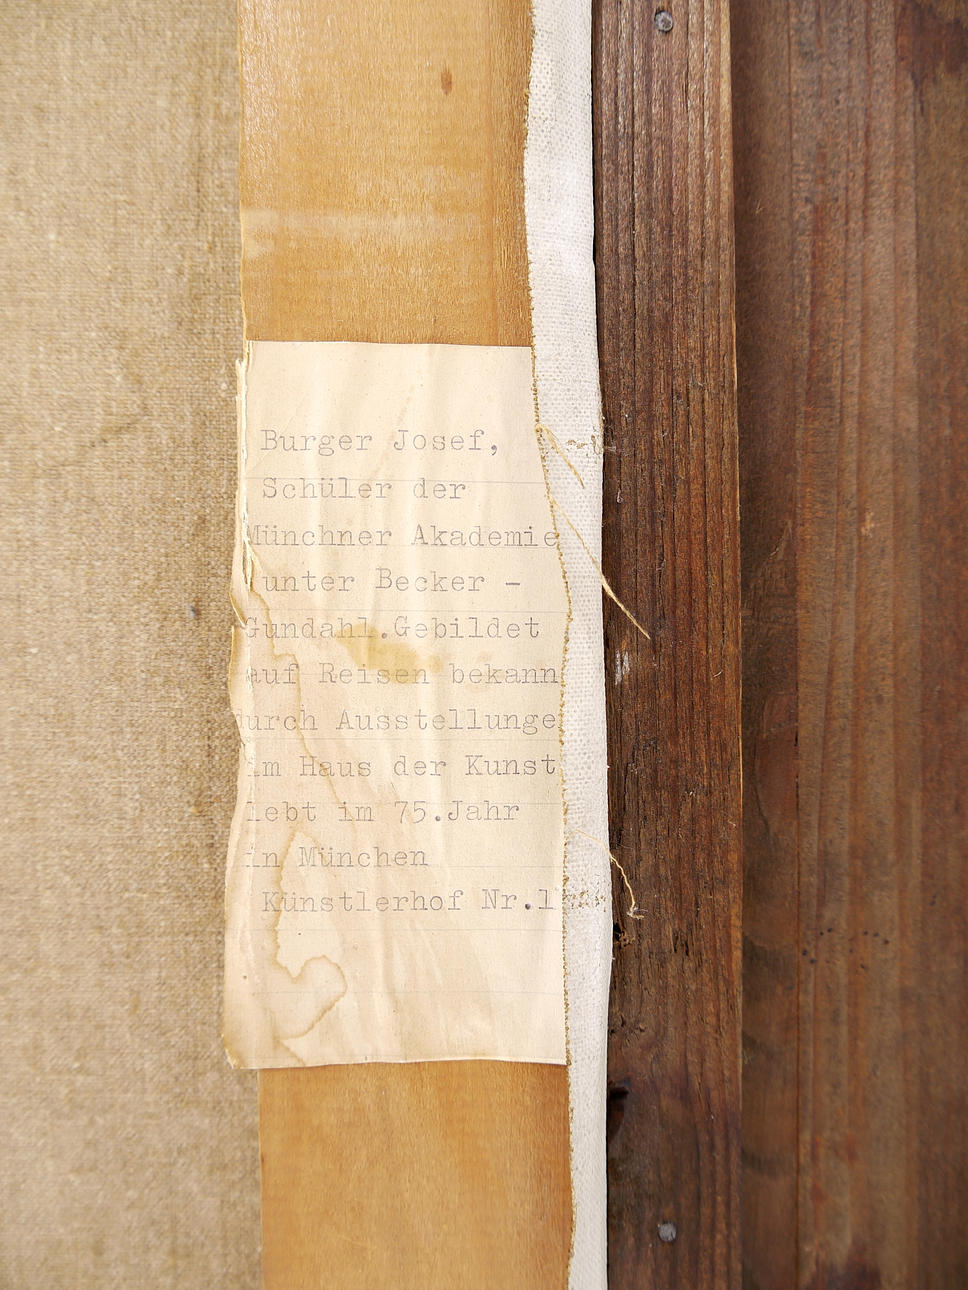 Burger Josef,
Schüler der
Münchner Akademie
unter Becker -
Gundahl.Gebildet
auf Reisen bekann
durch Ausstellunge
im Haus der Kunst
lebt im 75.Jahr
in München
Künstlerhof Nr.1